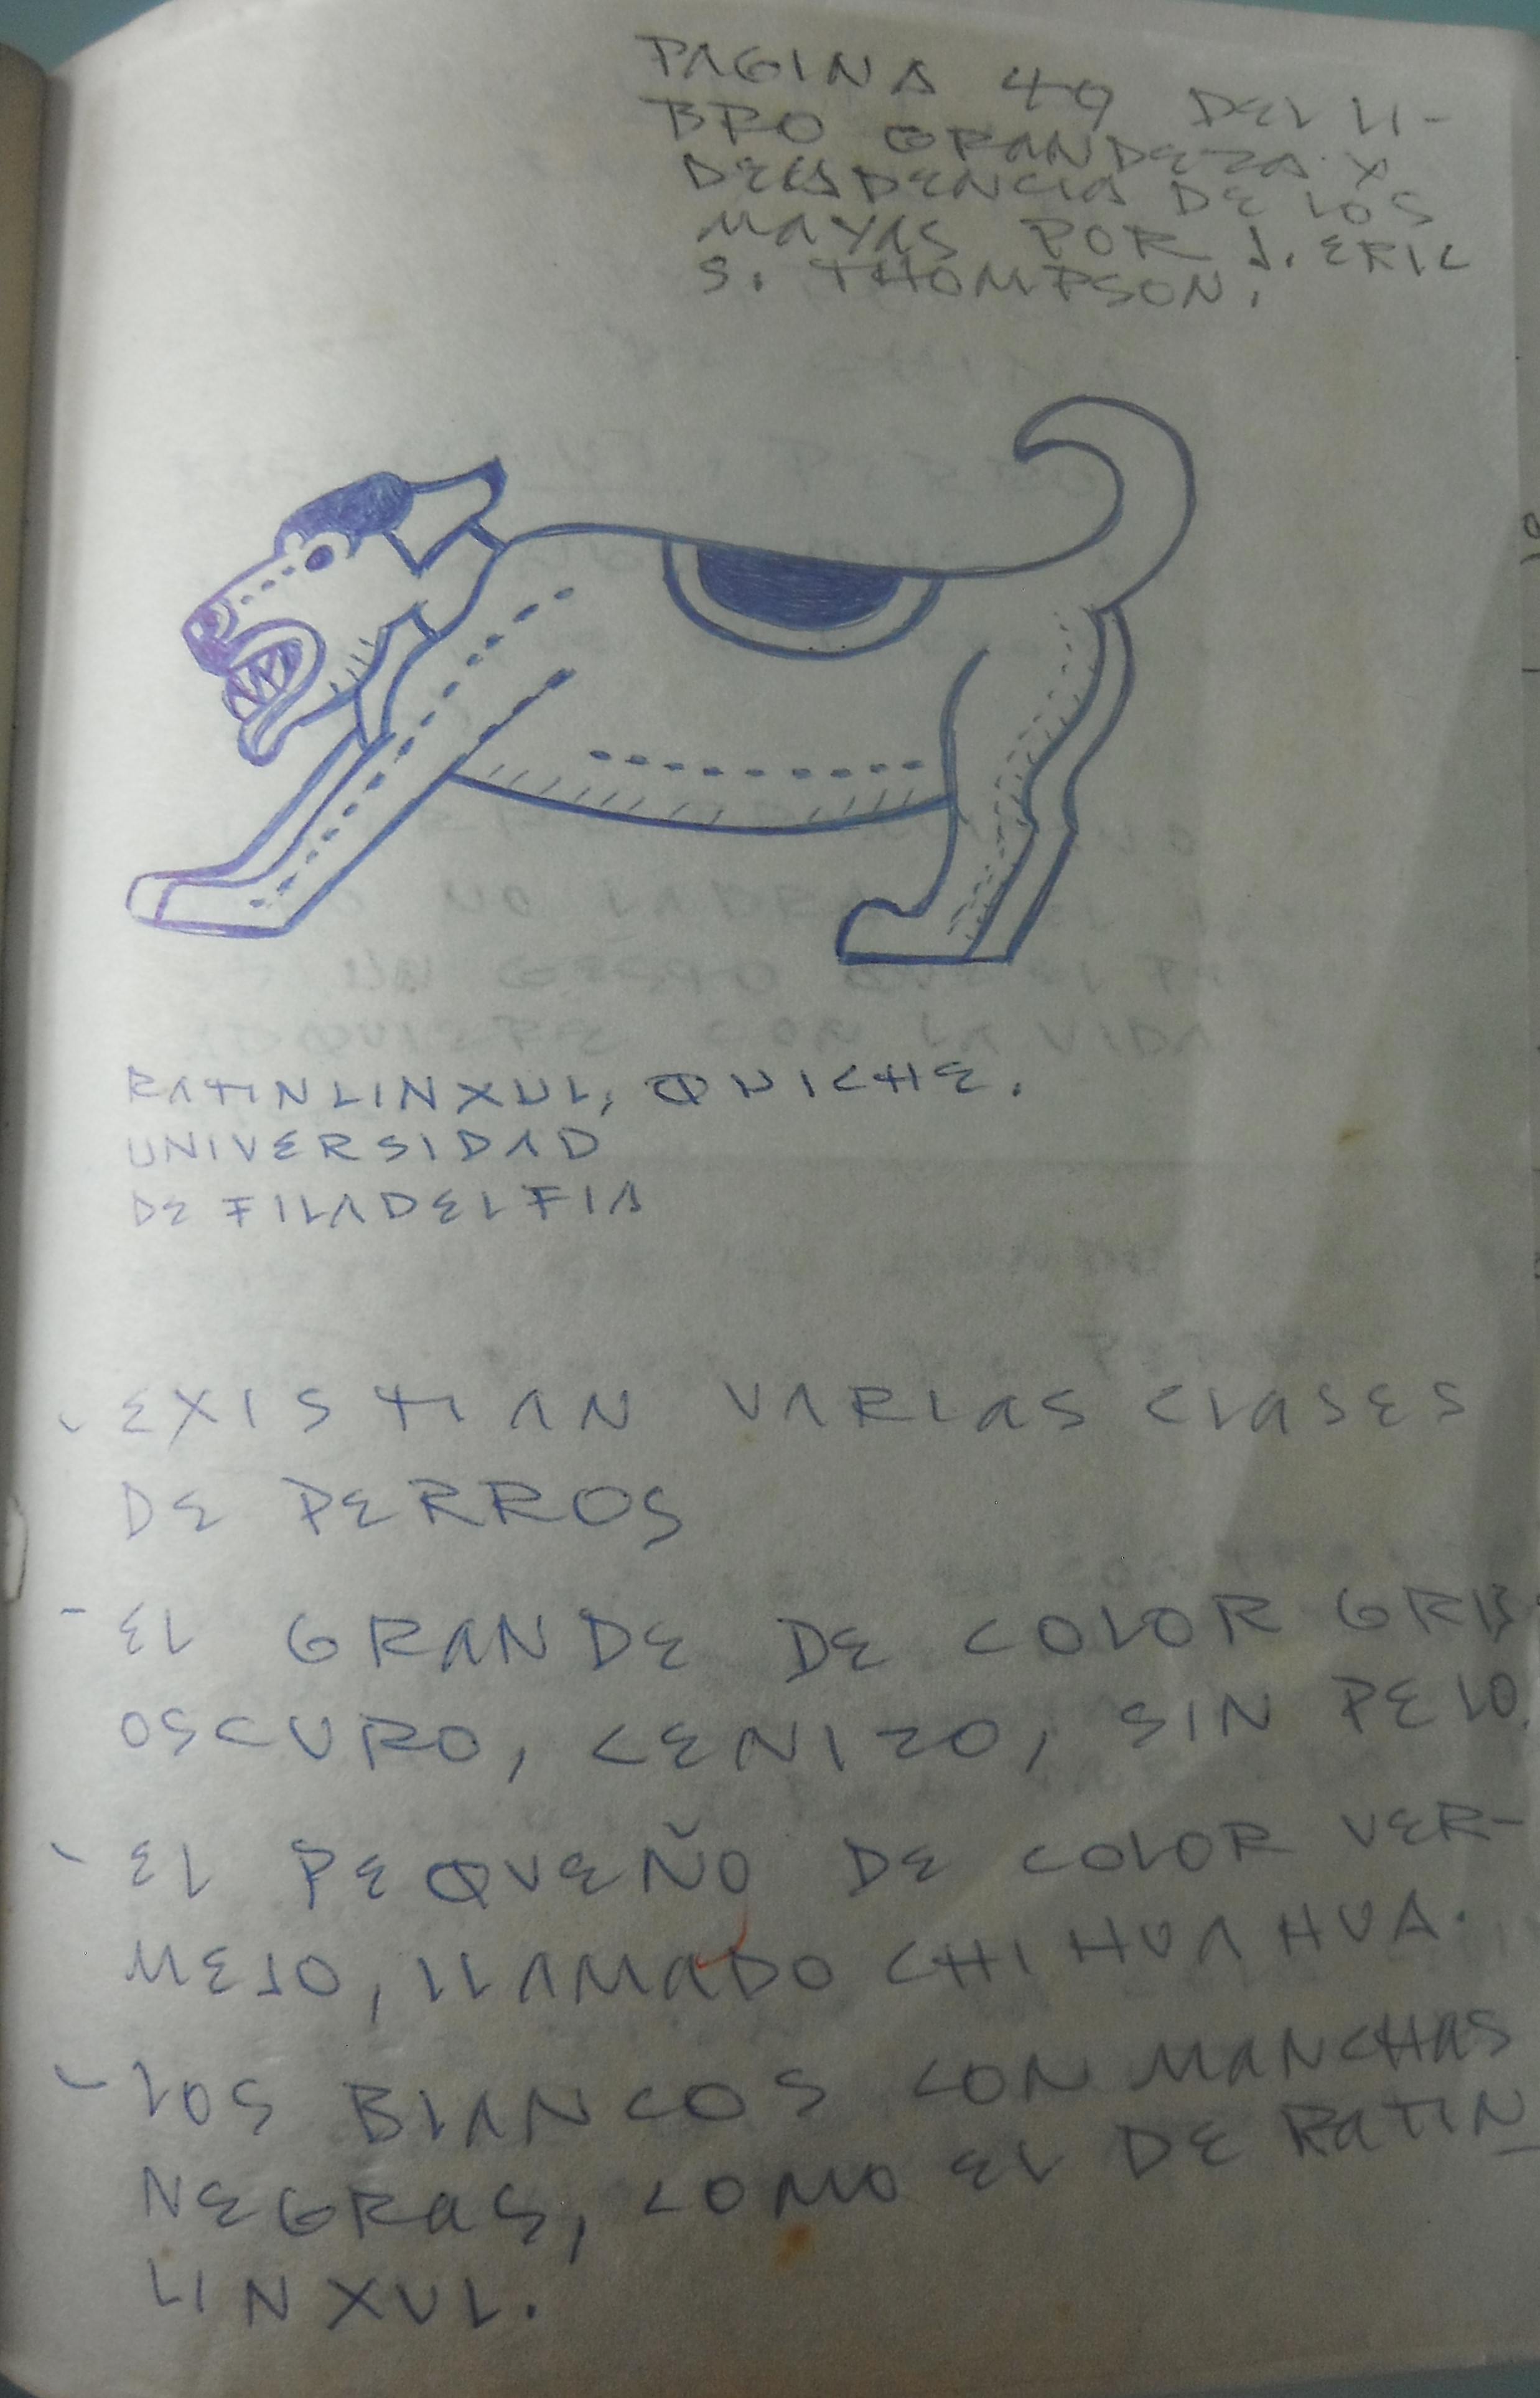 PAGINA 49 DEL LI-
BRO GRANDEZA Y
DECADENCIA DE LOS
MAYAS POR J. ERIC
S. THOMPSON.
RATINLINXUL, QUICHE.
UNIVERSIDAD
DE FILADELFIA
- EXISTIAN VARIAS CLASES
DE PERROS
- EL GRANDE DE COLOR GRIS
OSCURO, CENIZO, SIN PELO.
- EL PEQUEÑO DE COLOR VER-
MEJO, LLAMADO CHIHUAHUA.
- LOS BLANCOS CON MANCHAS
NEGRAS, COMO EL DE RATIN
LINXUL.